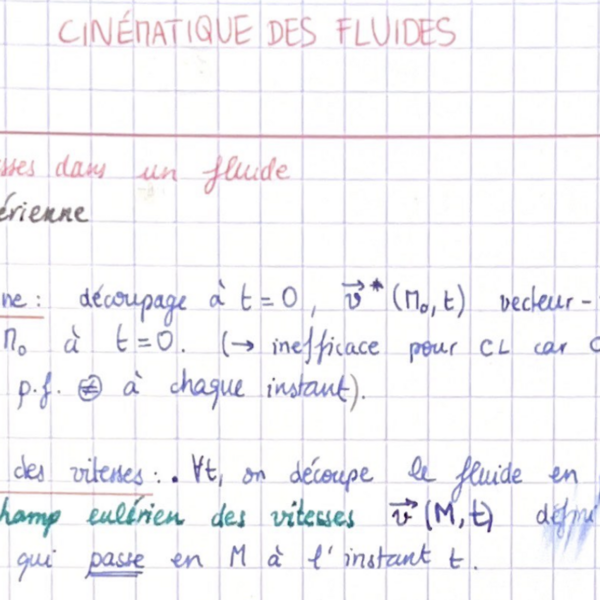 CINÉMATIQUE DES FLUIDES
sses dans un fluide
érienne
ne : découpage à t = 0, v⃗* (M₀, t) vecteur-
M₀ à t = 0. (→ inefficace pour CL car
p.f. ≠ à chaque instant).
des vitesses : . ∀t, on découpe le fluide en
hamp eulérien des vitesses v⃗ (M, t) défini
qui passe en M à l'instant t.